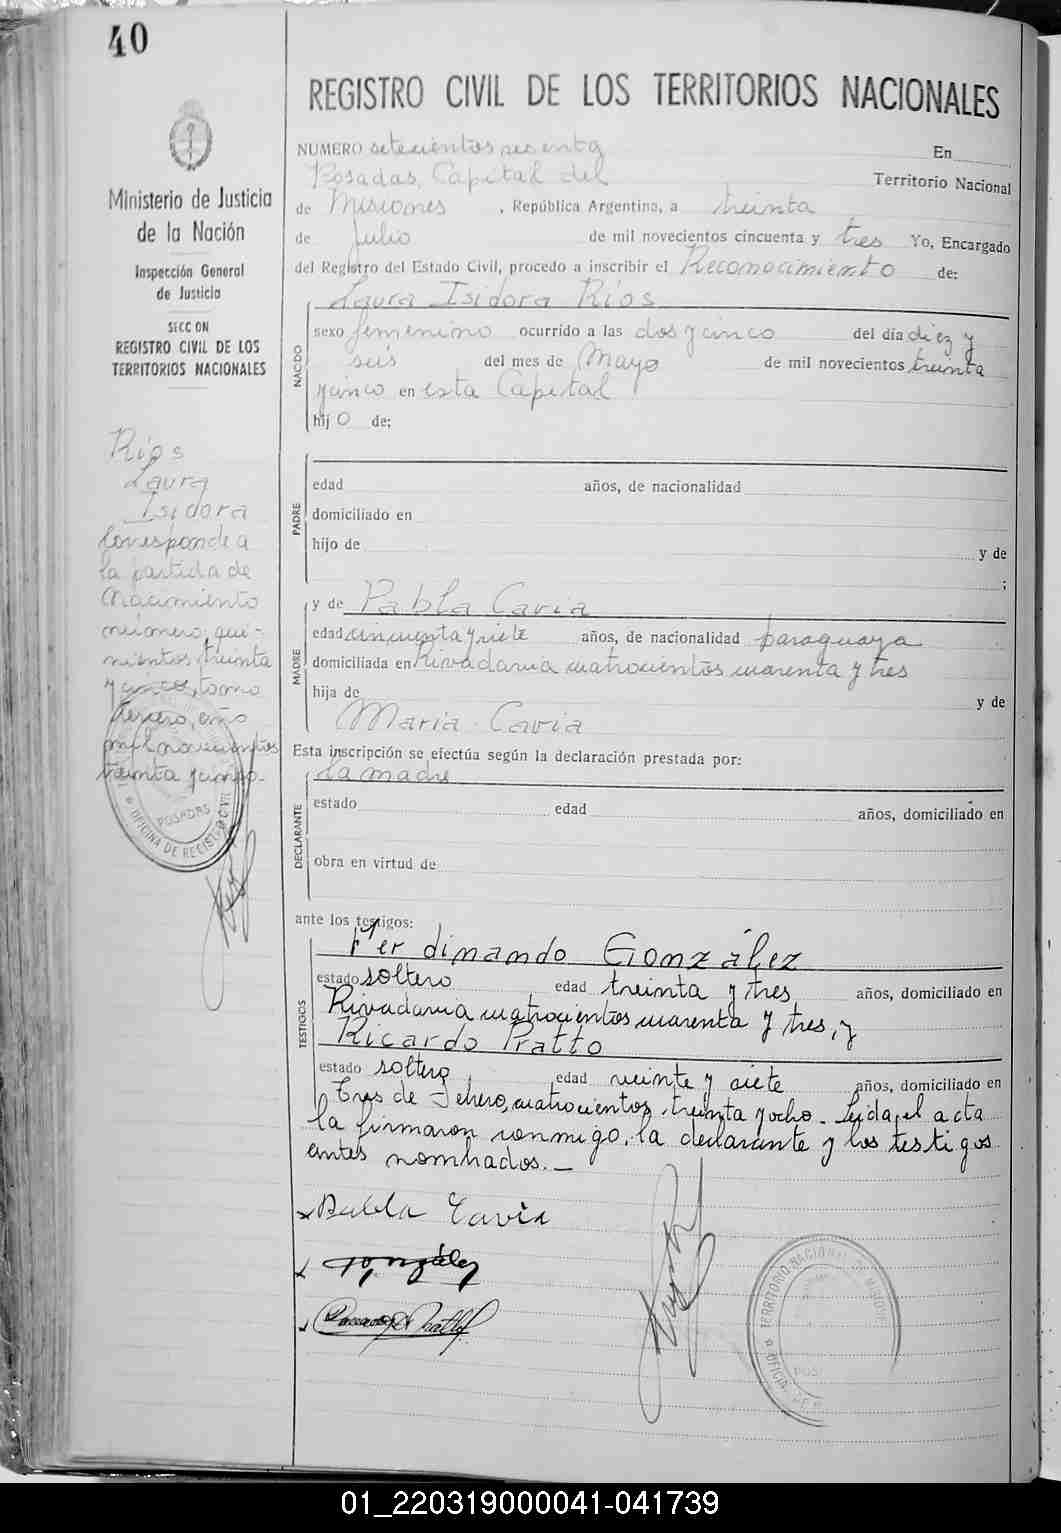 40
REGISTRO CIVIL DE LOS TERRITORIOS NACIONALES
Ministerio de Justicia
de la Nación
Inspección General
de Justicia
SECCON
REGISTRO CIVIL DE LOS
TERRITORIOS NACIONALES
Ríos
Laura
Isidora
Corresponde a
la partida de
Nacimiento
número, qui-
nientos treinta
y cinco, tomo
tercero, año
mil novecientos
treinta y cinco.
POSADAS
OFICINA DE REGISTRO CIVIL
NUMERO setecientos sesenta En
Posadas, Capital del Territorio Nacional
de Misiones , República Argentina, a treinta
de Julio de mil novecientos cincuenta y tres Yo, Encargado
del Registro del Estado Civil, procedo a inscribir el Reconocimiento de:
Laura Isidora Ríos
NACIDO
sexo femenino ocurrido a las dos y cinco del día diez y
seis del mes de Mayo de mil novecientos treinta
y cinco en esta Capital
hij o de:
PADRE
edad años, de nacionalidad
domiciliado en
hijo de y de
;
MADRE
y de Pabla Cavia
edad cincuenta y siete años, de nacionalidad paraguaya
domiciliada en Rivadavia cuatrocientos cuarenta y tres
hija de y de
Maria Cavia
Esta inscripción se efectúa según la declaración prestada por:
La madre
DECLARANTE
estado edad años, domiciliado en
obra en virtud de
ante los testigos:
TESTIGOS
Ferdinando González
estado soltero edad treinta y tres años, domiciliado en
Rivadavia cuatrocientos cuarenta y tres, y
Ricardo Pratto
estado soltero edad veinte y siete años, domiciliado en
Tres de Febrero, cuatrocientos treinta y ocho. Leida el acta
la firmaron conmigo, la declarante y los testigos
antes nombrados. —
x Pabla Cavia
x González
TERRITORIO NACIONAL DE MISIONES
01_220319000041-041739